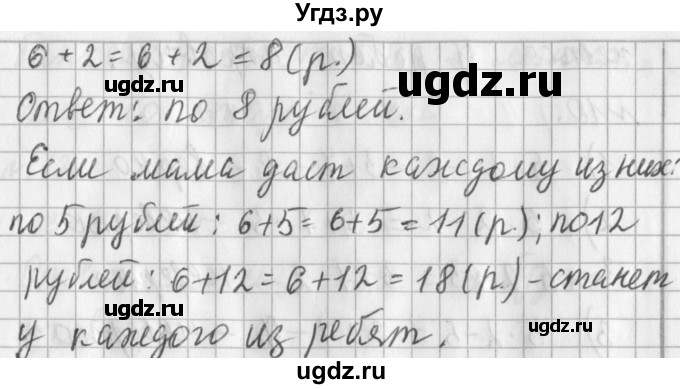 Угдз.ру
6 + 2 = 6 + 2 = 8 (р.)
gdz.ru
ugdz.ru
Ответ: по 8 рублей.
Если мама даст каждому из них:
по 5 рублей: 6+5 = 6+5 = 11 (р.); по 12
рублей: 6+12 = 6+12 = 18 (р.) - станет
ugdz.ru
у каждого из ребят.
ugdz.ru